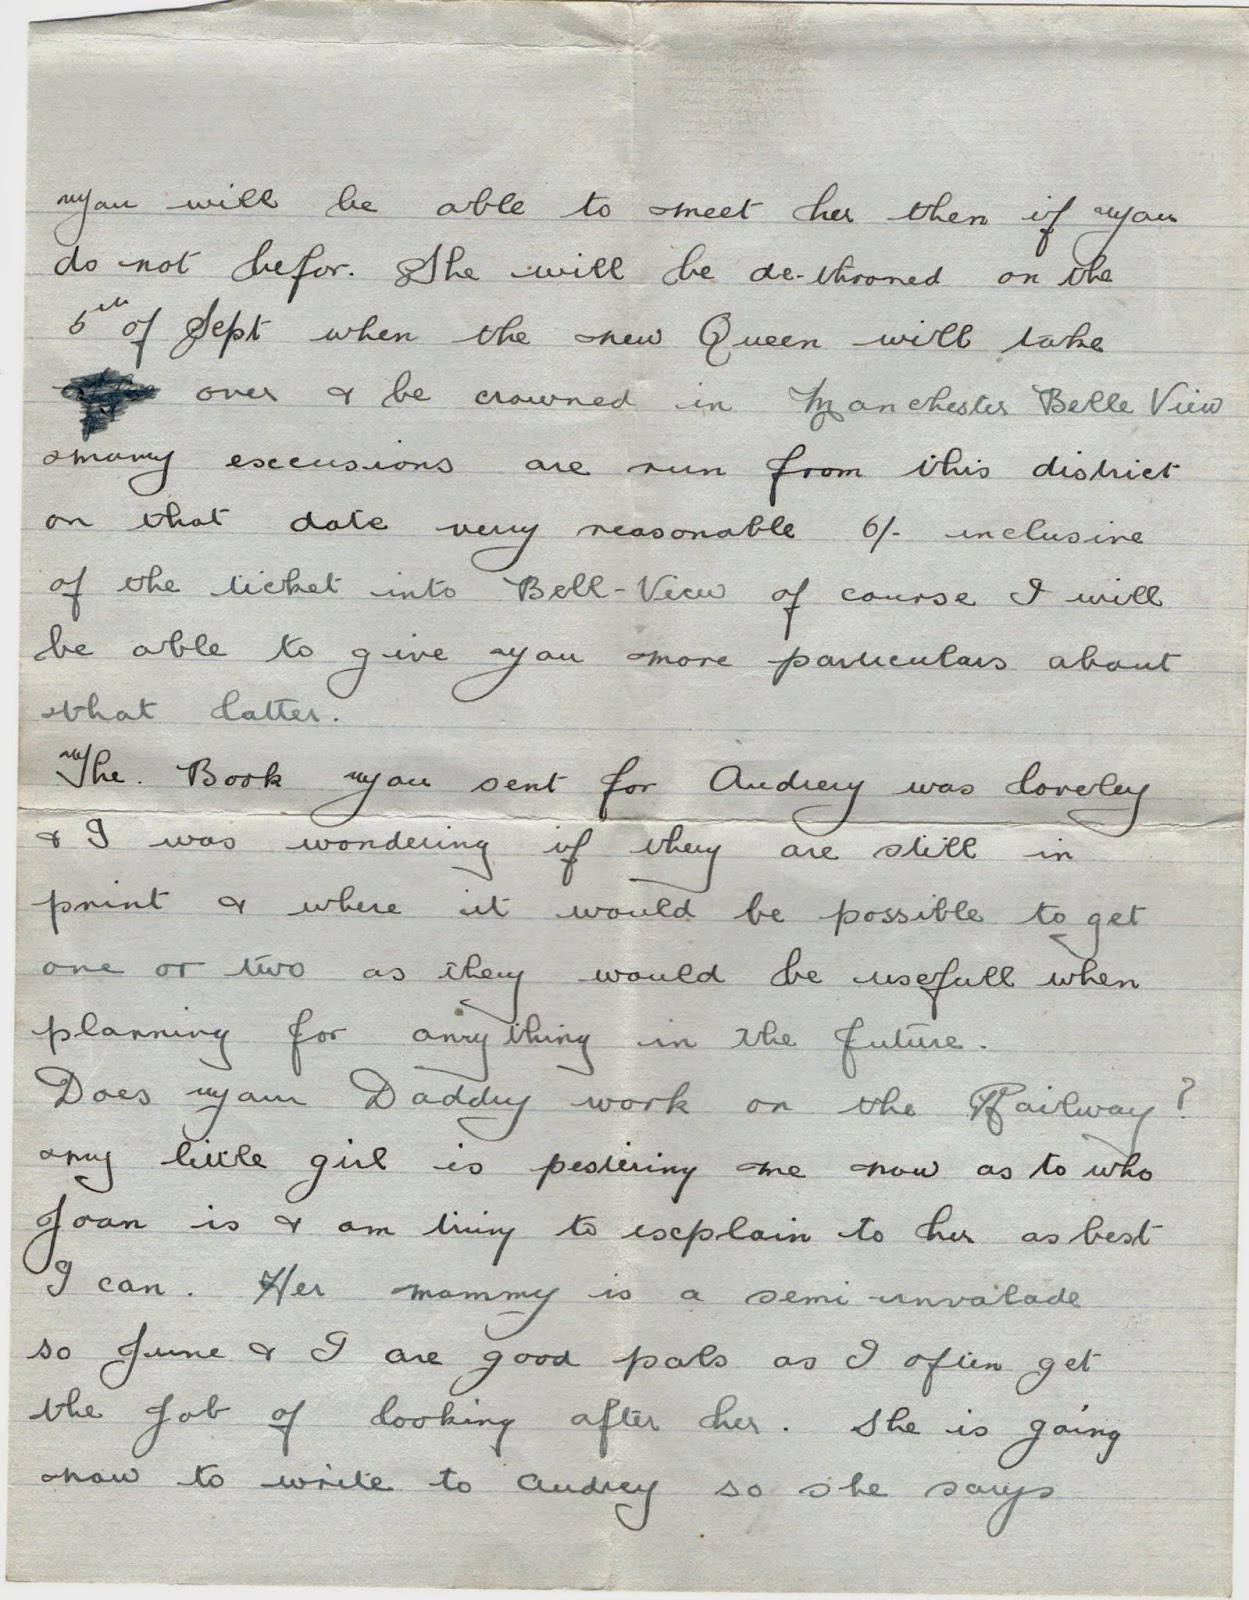 you will be able to meet her then if you
do not befor. She will be de-throned on the
5th of Sept when the new Queen will take
over & be crowned in Manchester Belle View
many excursions are run from this district
on that date very reasonable 6/- inclusive
of the ticket into Bell-View of course I will
be able to give you more particulars about
that latter.
The. Book you sent for Audrey was loveley
& I was wondering if they are still in
print & where it would be possible to get
one or two as they would be usefull when
planning for anything in the future.
Does your Daddy work on the Railway?
my little girl is pestering me now as to who
Joan is & am triing to explain to her as best
I can. Her mammy is a semi-invalade
so June & I are good pals as I often get
the Job of looking after her. She is going
now to write to Audrey so she says